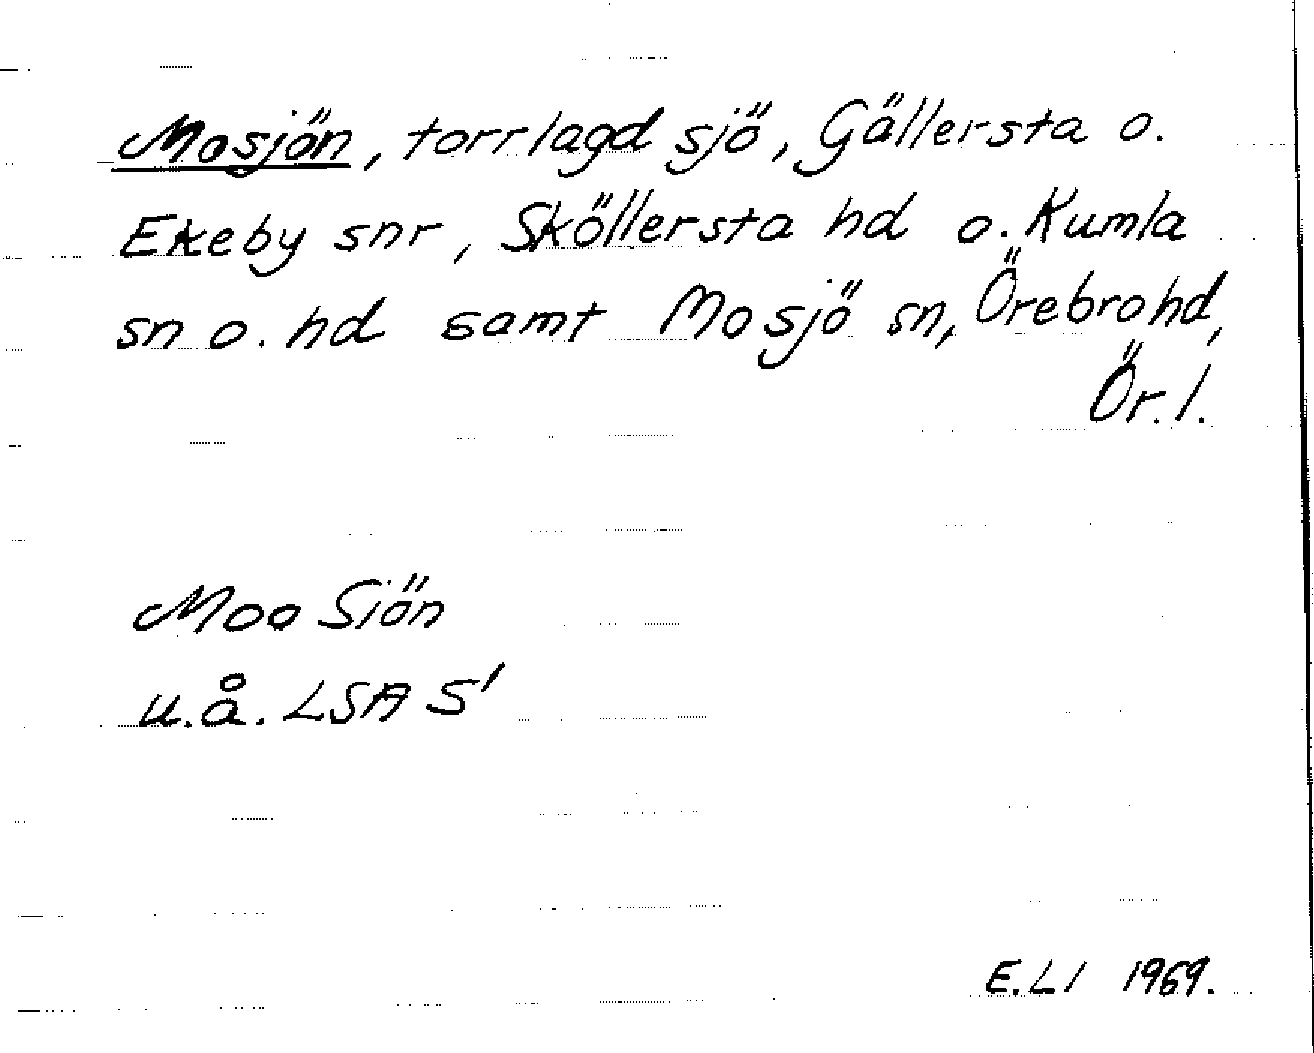 Mosjön, torrlagd sjö, Gällersta o.
Ekeby snr, Sköllersta hd o. Kumla
sn o. hd samt Mosjö sn, Örebro hd,
Ör. l.
Moo Siön
u.å. LSA S1
E.Ll 1969.